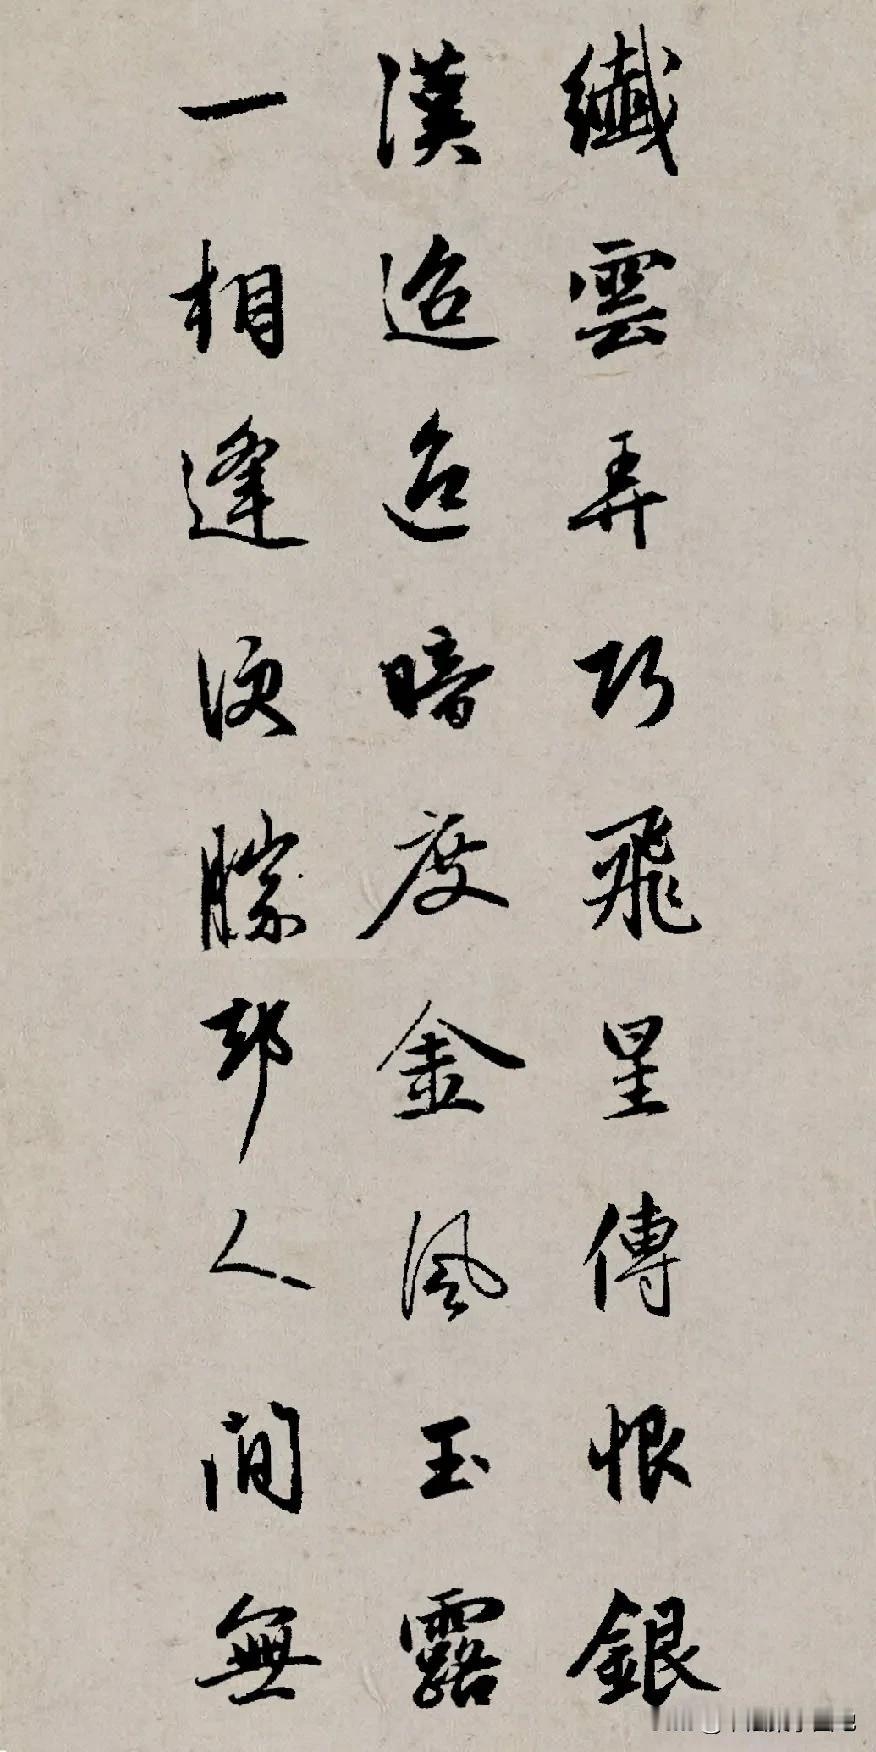 纖雲弄巧飛星傳恨銀
漢迢迢暗度金風玉露
一相逢便勝卻人間無